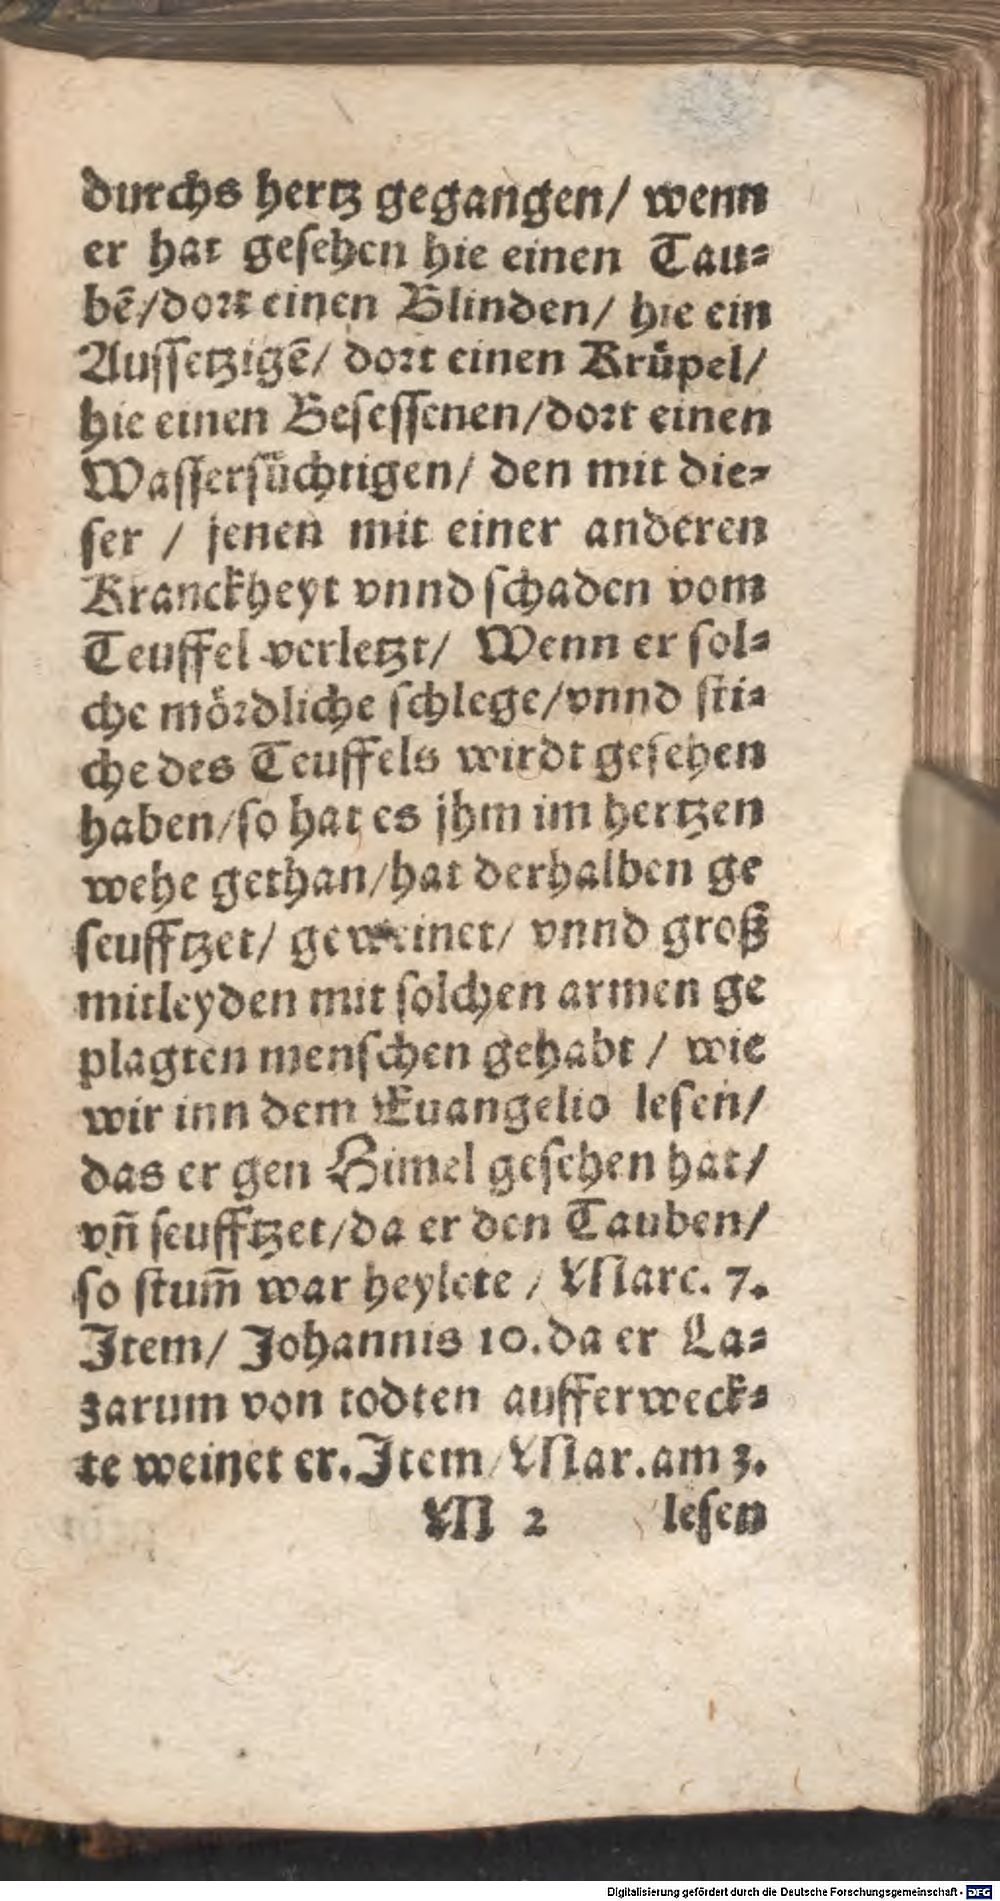 durchs hertz gegangen/ wenn
er hat geſehen hie einen Tau⸗
bē/dort einen Blinden/ hie ein
Auſſetzigē/ dort einen Krüpel/
hie einen Beſeſſenen/dort einen
Waſſerſüchtigen/ den mit die⸗
ſer / jenen mit einer anderen
Kranckheyt vnnd ſchaden vom
Teuffel verletzt/ Wenn er ſol⸗
che mördliche ſchlege/vnnd ſti⸗
che des Teuffels wirdt geſehen
haben/ſo hat es jhm im hertzen
wehe gethan/hat derhalben ge
ſeufftzet/ geweinet/ vnnd groß
mitleyden mit ſolchen armen ge
plagten menſchen gehabt / wie
wir inn dem Euangelio leſen/
das er gen Himel geſehen hat/
vn̄ ſeufftzet/da er den Tauben/
ſo ſtum̄ war heylete / Marc. 7.
Item/ Johannis 10. da er La⸗
zarum von todten aufferweck⸗
te weinet er. Item/Mar. am 3.
M 2 leſen
Digitalisierung gefördert durch die Deutsche Forschungsgemeinschaft - DFG